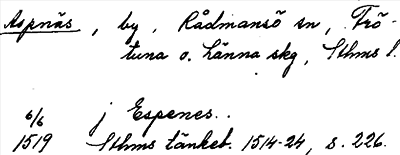 Aspnäs, by, Rådmansö sn, Frö-
tuna o. Länna skg, Sthms l.
6/6 j Espenes..
1519 Sthms tänkeb. 1514-24, s. 226.